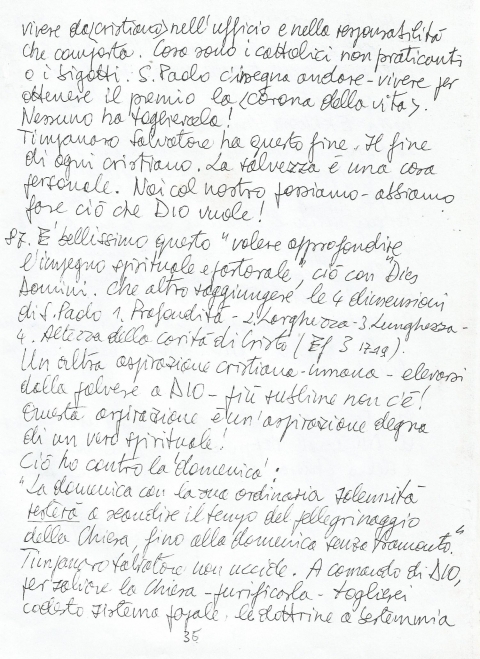 vivere da <cristiano> nell'ufficio e nella responsabilità
che comporta. Cosa sono i cattolici non praticanti
o i bigotti. S. Paolo c'insegna andare - vivere per
ottenere il premio la <Corona della vita>.
Nessuno ha togliercela!
Timpanaro Salvatore ha questo fine. Il fine
di ogni cristiano. La salvezza è una cosa
personale. Noi col nostro possiamo - abbiamo
fare ciò che DIO vuole!
87. E' bellissimo questo "volere approfondire
l'impegno spirituale e pastorale", ciò con "Dies
Domini. Che altro raggiungere le 4 dimensioni
di S. Paolo 1. Profondità - 2. Larghezza - 3. Lunghezza -
4. Altezza della carità di Cristo (Ef 3 17.19).
Un'altra aspirazione cristiana-umana - elevarsi
dalla polvere a DIO - più sublime non c'è!
Questa aspirazione è un'aspirazione degna
di un vero spirituale!
Ciò ho contro la 'domenica':
"La domenica con la sua ordinaria solennità
resterà a scandire il tempo del pellegrinaggio
della Chiesa, fino alla domenica senza tramonto."
Timpanaro Salvatore non uccide. A comando di DIO,
per salvare la Chiesa - purificarla - toglierei
codesto sistema papale, le dottrine a bestemmia
35